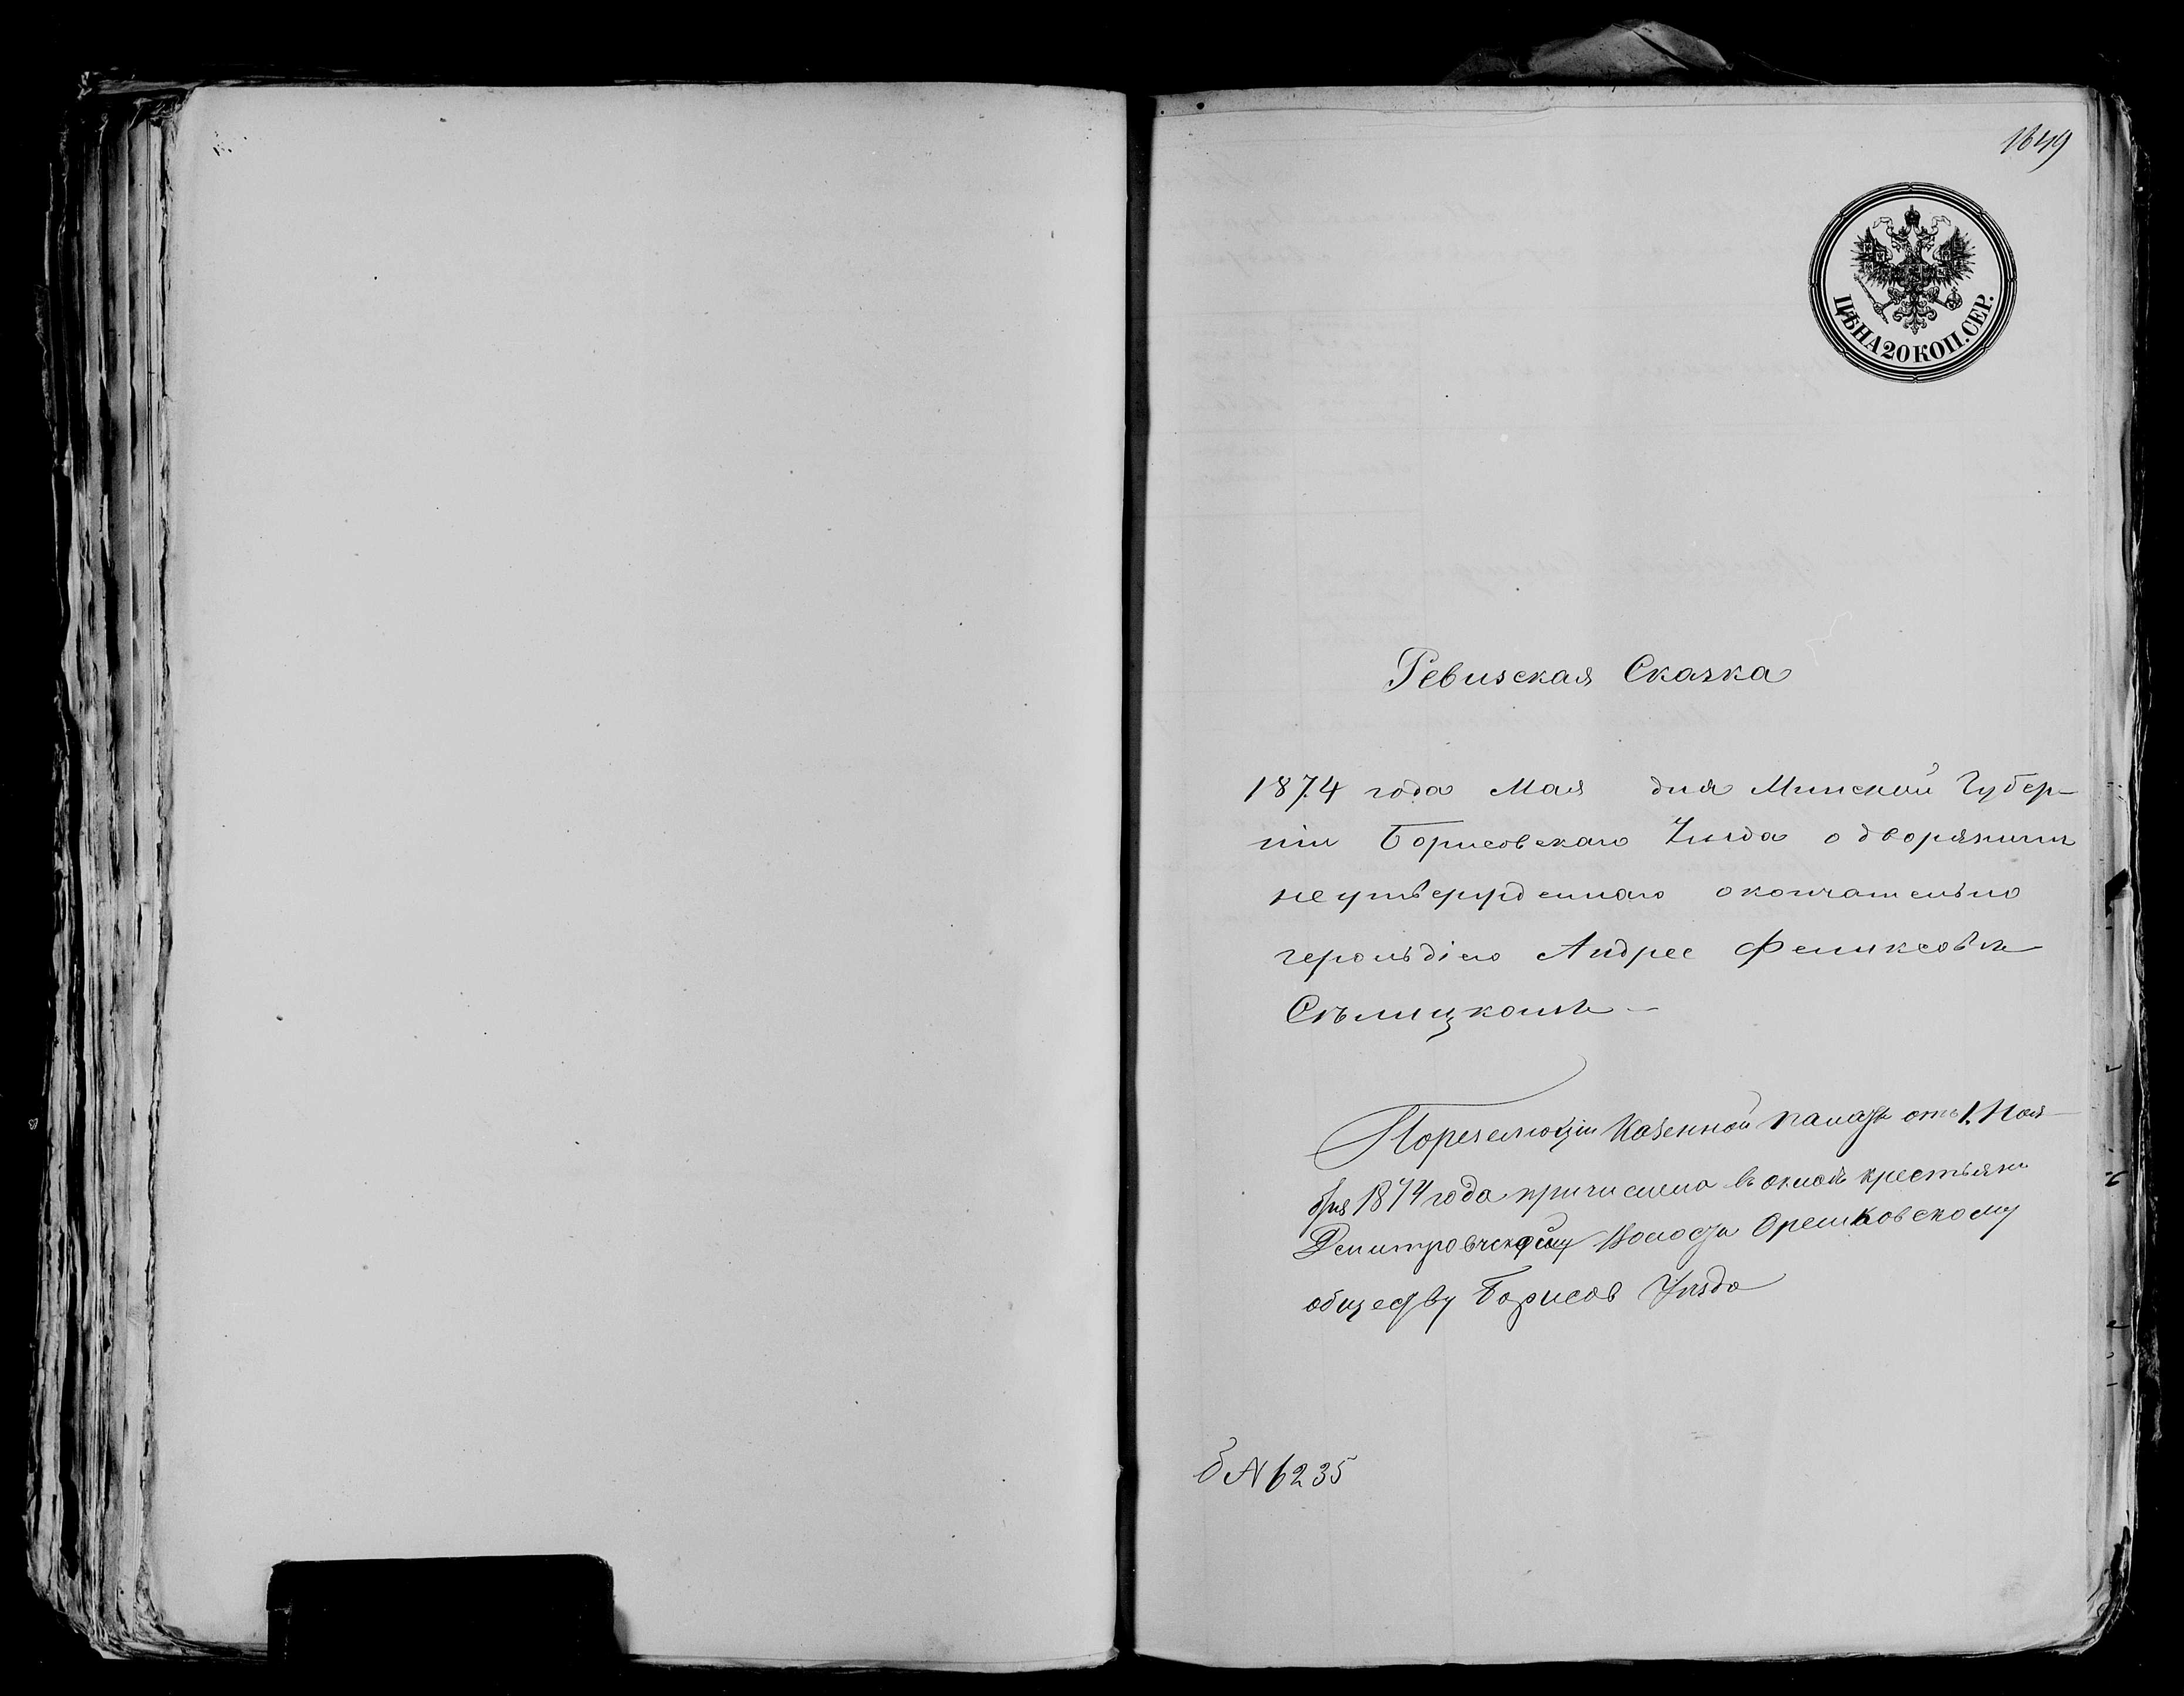 1649
ЦѢНА 20 КОП. СЕР.
Ревизская Сказка
1874 года Мая дня Минской Губер-
ніи Борисовскаго Уѣзда о дворянинѣ
неутвержденнаго окончательно
герольдіею Андрее Феликсовѣ
Сѣлицкомъ
По резолюціи Казенной палаты отъ 1. Ноя-
бря 1874 года причислена въ окладъ крестьянъ
Демитровичской Волости Орешковскому
обществу Борисов Уѣзда
б № 6235